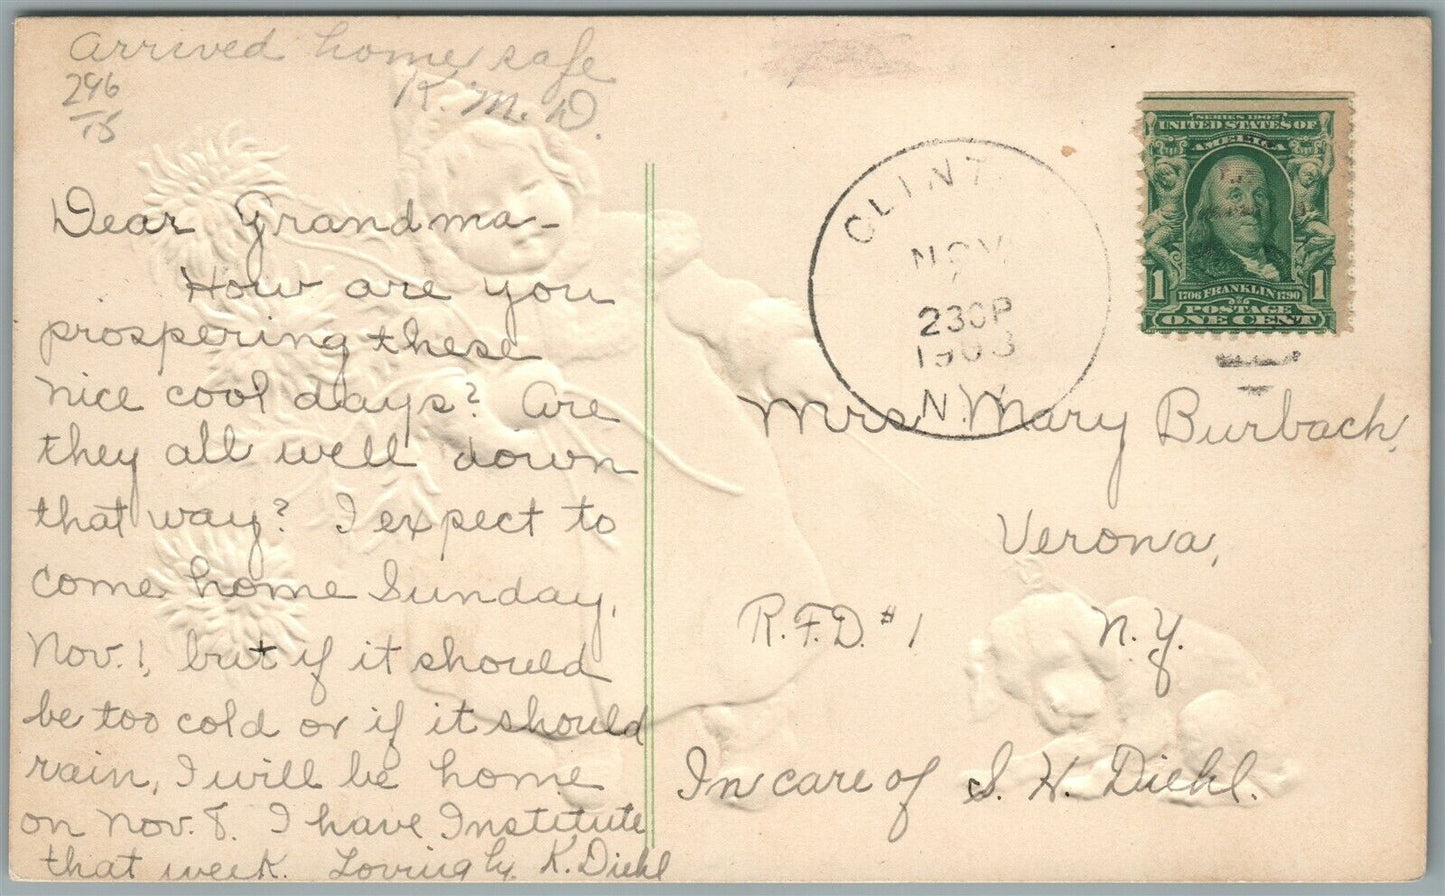 Arrived home safe
K. M. D.
296
15
Dear Grandma—
How are you
prospering these
nice cool days? Are
they all well down
that way? I expect to
come home Sunday,
Nov. 1, but if it should
be too cold or if it should
rain, I will be home
on Nov. 8. I have Institute
that week. Lovingly, K. Diehl
CLINT
NOV
230P
N.Y.
SERIES 1902
UNITED STATES OF
AMERICA
1 1706 FRANKLIN 1790 1
POSTAGE
ONE CENT
Mrs. Mary Burbach,
Verona,
R.F.D. #1 N.Y.
In care of S. H. Diehl.